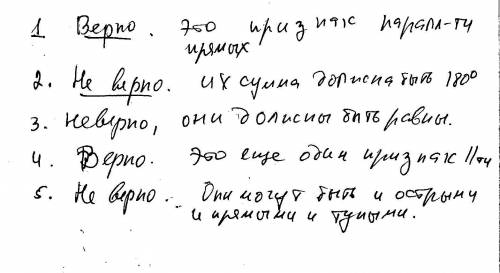 1 Верно. Это признак паралл-ти
прямых
2. Не верно. их сумма должна быть 180°
3. неверно, они должны быть равны.
4. Верно. Это еще один признак ||ти
5. Не верно. Они могут быть и острыми
и прямыми и тупыми.